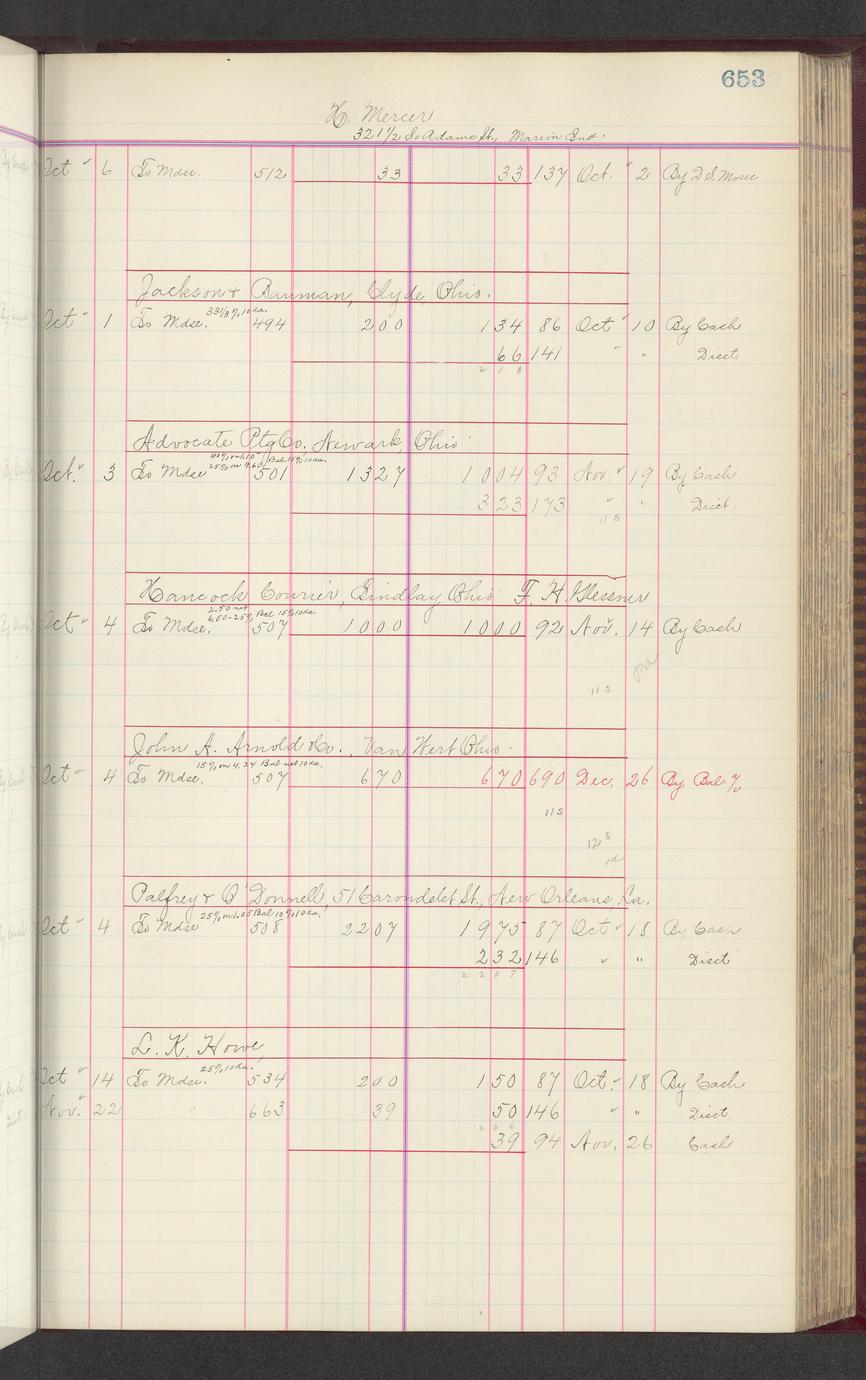 653
H. Mercer
321 1/2 So Adams St., Marion Ind.
Oct " 6 To Mdse. 512 33 33 137 Oct. " 2 By
Jackson & Bauman, Clyde, Ohio.
33 1/3 % 10 da.
Oct " 1 To Mdse. 494 200 134 86 Oct " 10 By Cash
66 141 " " Disct
200
Advocate Ptg Co. Newark, Ohio
40% on 1.10 Bal. 15% 10 da.
25% on 9.60
Oct. " 3 To Mdse 501 1327 1004 93 Nov. " 19 By Cash
323 173 " " Disct.
11 5
Hancock Courier, Findlay Ohio F. H. Glessner
2.50 net
6.50-25% Bal 15% 10 da.
Oct " 4 To Mdse. 507 1000 1000 92 Nov. " 14 By Cash
pd
11 5
John A. Arnold & Co., Van Wert Ohio.
15% on 4.24 Bal net 10 da.
Oct " 4 To Mdse. 507 670 670 690 Dec. 26 By Bal %
11 5
12 5
Palfrey & O'Donnell 51 Carondelet St., New Orleans La.
25% on 1.05 Bal 10% 10 da.
Oct " 4 To Mdse 508 2207 1975 87 Oct " 18 By Cash
232 146 " " Disct
2207
L. K. Howe,
25% 10 da.
Oct " 14 To Mdse. 534 200 150 87 Oct. " 18 By Cash
Nov. " 22 " 663 39 50 146 " " Disct.
200
39 94 Nov. 26 Cash